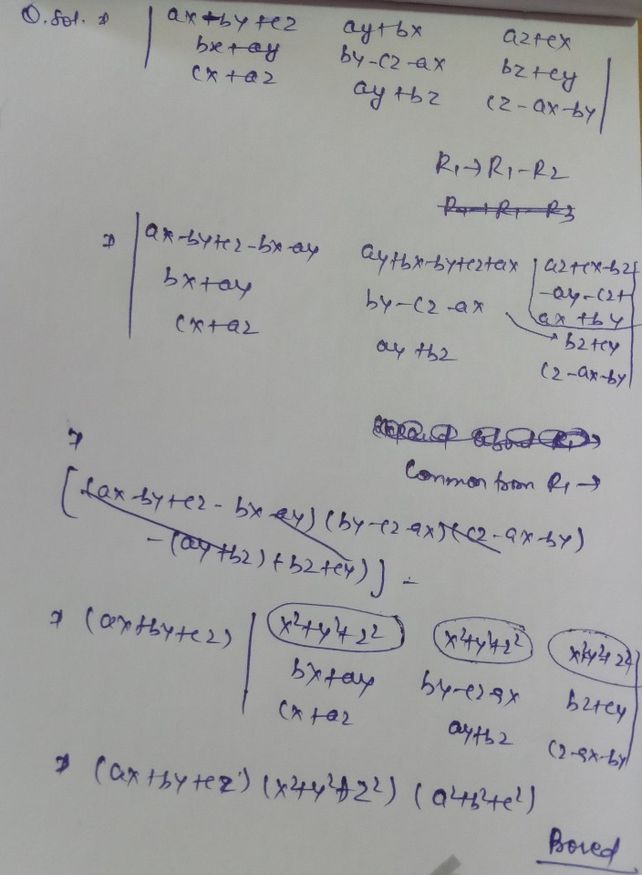 Q. Sol. ⇒ | ax+by+cz ay+bx az+cx |
bx+ay by-cz-ax bz+cy
cx+az ay+bz cz-ax-by
R₁→R₁-R₂
R₁→R₁-R₃
⇒ | ax-by+cz-bx-ay ay+bx-by+cz+ax az+cx-bz
-ay-cz+
ax+by
bx+ay by-cz-ax bz+cy
cx+az ay+bz cz-ax-by |
Common from R₁→
⇒
[(ax-by+cz-bx-ay)(by-cz-ax)(cz-ax-by)
-(ay+bz)+bz+cy)] =
⇒ (ax+by+cz) | x²+y²+z² x²+y²+z² x²+y²+z² |
bx+ay by-cz-ax bz+cy
cx+az ay+bz cz-ax-by
⇒ (ax+by+cz) (x²+y²+z²) (a²+b²+c²)
Boved